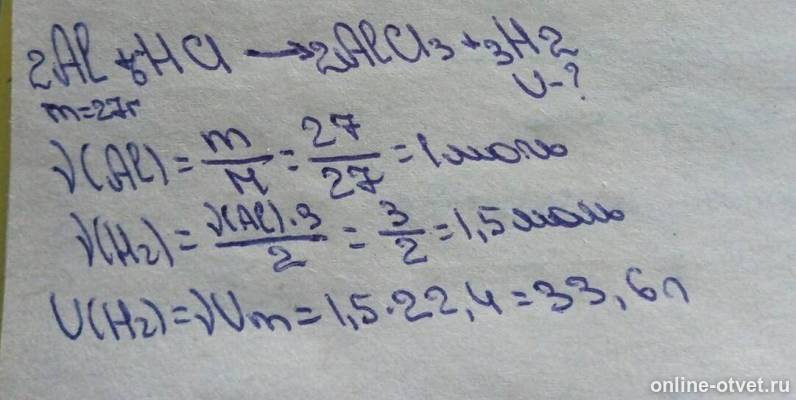 2Al + 6HCl → 2AlCl3 + 3H2
m=27г V-?
ν(Al) = m/M = 27/27 = 1 моль
ν(H2) = ν(Al)·3/2 = 3/2 = 1,5 моль
V(H2) = νVm = 1,5·22,4 = 33,6 л
online-otvet.ru